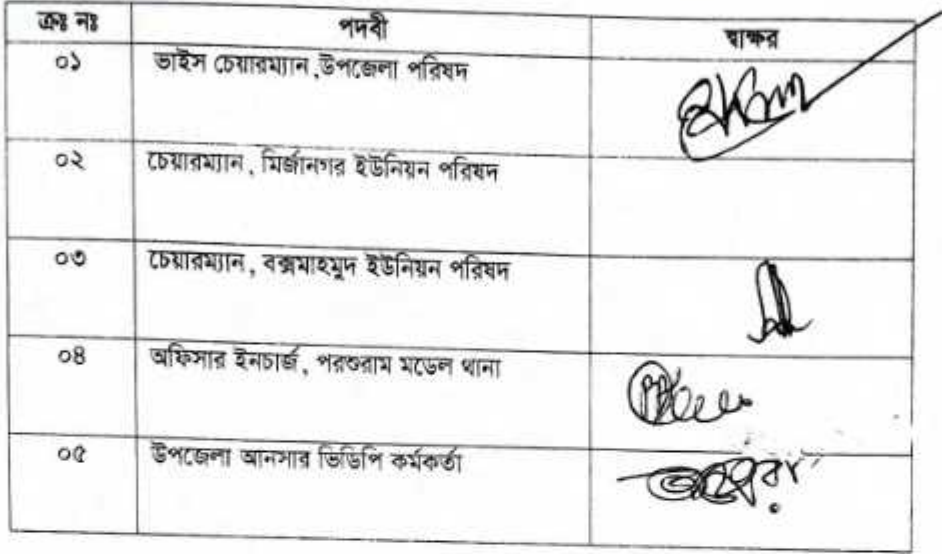 ক্রঃ নঃ পদবী স্বাক্ষর
০১ ভাইস চেয়ারম্যান ,উপজেলা পরিষদ
০২ চেয়ারম্যান , মির্জানগর ইউনিয়ন পরিষদ
০৩ চেয়ারম্যান , বক্সমাহমুদ ইউনিয়ন পরিষদ
০৪ অফিসার ইনচার্জ , পরশুরাম মডেল থানা
০৫ উপজেলা আনসার ভিডিপি কর্মকর্তা